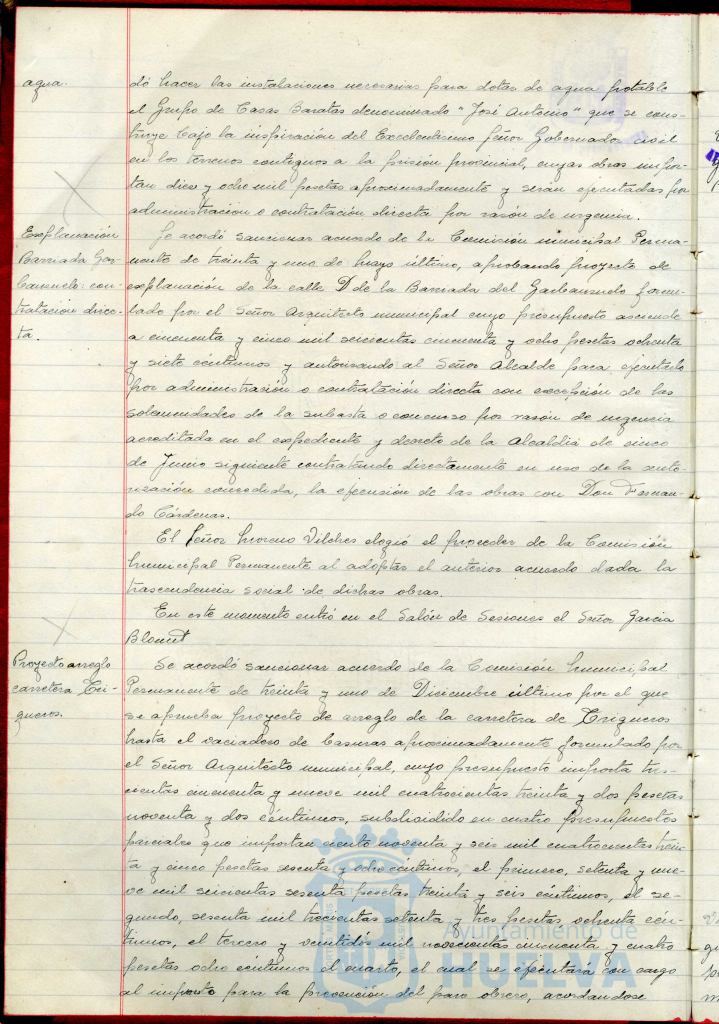 agua.
dó hacer las instalaciones necesarias para dotar de agua potable
el Grupo de Casas Baratas denominado "José Antonio" que se cons-
truye bajo la inspiración del Excelentísimo Señor Gobernador civil
en los terrenos contiguos a la prisión provincial, cuyas obras impor-
tan diez y ocho mil pesetas aproximadamente y serán ejecutadas por
administración o contratación directa por razón de urgencia.
Explanación
Barriada Gar-
banzuelo: con-
tratación direc-
ta.
Se acordó sancionar acuerdo de la Comisión municipal Perma-
nente de treinta y uno de Mayo último, aprobando proyecto de
explanación de la calle D de la Barriada del Garbanzuelo formu-
lado por el Señor Arquitecto municipal cuyo presupuesto asciende
a cincuenta y cinco mil seicientas cincuenta y ocho pesetas ochenta
y siete céntimos y autorizando al Señor Alcalde para ejecutarlo
por administración o contratación directa con excepción de las
solemnidades de la subasta o concurso por razón de urgencia
acreditada en el expediente y decreto de la Alcaldía de cinco
de Junio siguiente contratando directamente en uso de la auto-
rización concedida, la ejecusión de las obras con Don Fernan-
do Cárdenas.
El Señor Moreno Vilches elogió el proceder de la Comisión
Municipal Permanente al adoptar el anterior acuerdo dada la
trascendencia social de dichas obras.
En este momento entró en el Salón de Sesiones el Señor Garcia
Proyecto arreglo
carretera Tri-
gueros.
Se acordó sancionar acuerdo de la Comisión Municipal
Permanente de treinta y uno de Diciembre último por el que
se aprueba proyecto de arreglo de la carretera de Trigueros
hasta el vaciadero de basuras aproximadamente formulado por
el Señor Arquitecto municipal, cuyo presupuesto importa tres-
cientas cincuenta y nueve mil cuatrocientas treinta y dos pesetas
noventa y dos céntimos, subdividido en cuatro presupuestos
parciales que importan ciento noventa y seis mil cuatrocientas trein-
ta y cinco pesetas sesenta y ocho céntimos, el primero, setenta y nue-
ve mil seicientas sesenta pesetas treinta y seis céntimos, el se-
gundo, sesenta mil trecientas setenta y tres pesetas ochenta cén-
timos, el tercero y veintidós mil novecientas cincuenta y cuatro
pesetas ocho céntimos el cuarto, el cual se ejecutará con cargo
al impuesto para la prevención del paro obrero, acordandose
Ayuntamiento de
HUELVA